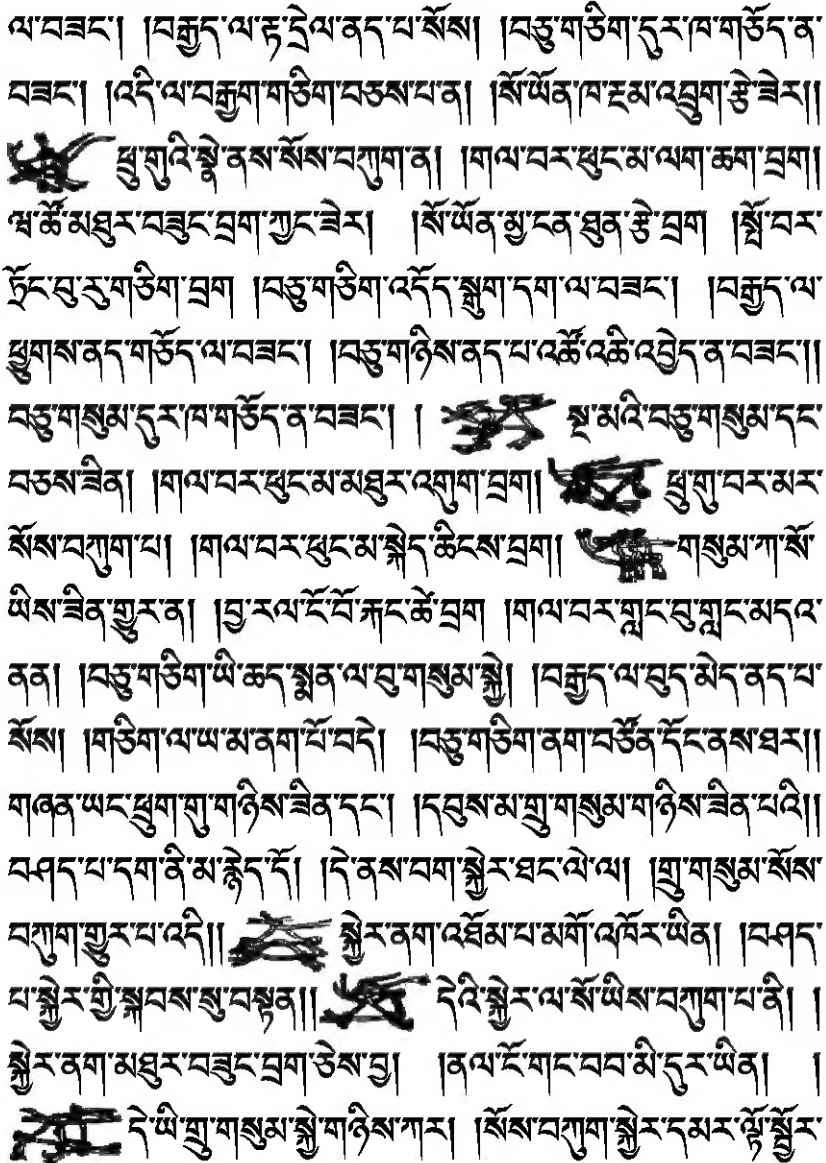 ལ་བཟང་། །བརྒྱད་ལ་རྟ་དྲེལ་ནད་པ་སོས། །བཅུ་གཅིག་དུར་ཁ་གཅོད་ན་
བཟང་། །འདི་ལ་བརྒྱག་གཅིག་བཅས་པ་ན། །སོ་ཡོན་ཁ་རྔམ་འབྲུག་རྩེ་ཟེར།།
ཕྲུ་གུའི་སྣེ་ནས་སོས་བཀུག་ན། །གལ་བར་ཕུང་མ་ལག་ཆག་བྲག།
ལྷ་ཚོ་མཐུར་བཟུང་བྲག་ཀྱང་ཟེར། །སོ་ཡོན་མྱ་ངན་ཐུན་རྩེ་བྲག །སྤོ་བར་
ཏྲོང་བུ་རུ་གཅིག་བྲག །བཅུ་གཅིག་འདོད་སྒྲུག་དག་ལ་བཟང་། །བརྒྱད་ལ་
ཕྱུགས་ནད་གཅོད་ལ་བཟང་། །བཅུ་གཉིས་ནད་པ་འཚོ་འཆི་འབྱེད་ན་བཟང་།།
བཅུ་གསུམ་དུར་ཁ་གཅོད་ན་བཟང་། ། སྔ་མའི་བཅུ་གསུམ་དང་
བཅས་ཟིན། །གལ་བར་ཕུང་མ་མཐུར་འགུག་བྲག། ཕྲུ་གུ་བར་མར་
སོས་བཀུག་པ། །གལ་བར་ཕུང་མ་སྐེད་ཆིངས་བྲག། གསུམ་ཀ་སོ་
ཡིས་ཟིན་གྱུར་ན། །བྱ་རལ་ངོ་བོ་རྐང་ཚེ་བྲག །གལ་བར་གླང་བུ་གླང་མདའ་
ནན། །བཅུ་གཅིག་ཡི་ཆད་སྨན་ལ་བུ་གསུམ་སྐྱེ། །བརྒྱད་ལ་བུད་མེད་ནད་པ་
སོས། །གཅིག་ལ་ཡ་མ་ནག་པོ་བདེ། །བཅུ་གཅིག་ནག་བཙོན་དོང་ནས་ཐར།།
གཞན་ཡང་ཕྲུག་གུ་གཉིས་ཟིན་དང་། །དབུས་མ་གྲུ་གསུམ་གཉིས་ཟིན་པའི།།
བཤད་པ་དག་ནི་མ་རྙེད་དོ། །དེ་ནས་བག་སྐྱེར་ཐང་ལེ་ལ། །གྲུ་གསུམ་སོས་
བཀུག་གྱུར་པ་འདི།། སྐྱེར་ནག་འཐོམ་པ་མགོ་འཁོར་ཡིན། །བཤད་
པ་སྐྱེར་གྱི་སྐབས་སུ་བསྟན།། དེའི་སྐྱེར་ལ་སོ་ཡིས་བཀུག་པ་ནི། །
སྐྱེར་ནག་མཐུར་བཟུང་བྲག་ཅེས་བྱ། །ནལ་ངོ་གང་བབ་མི་དུར་ཡིན། །
དེ་ཡི་གྲུ་གསུམ་སྐྱེ་གཉིས་ཀར། །སོས་བཀུག་སྐྱེར་དམར་ལྟོ་སྦྱོར་